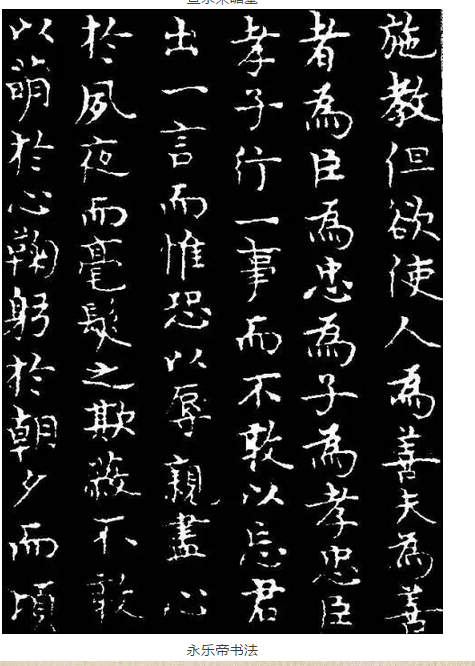 施教但欲使人為善夫為善
者為臣為忠為子為孝忠臣
孝子行一事而不敢以忘君
出一言而惟恐以辱親盡心
於夙夜而毫髮之欺蔽不敢
以萌於心鞠躬於朝夕而頃
永乐帝书法